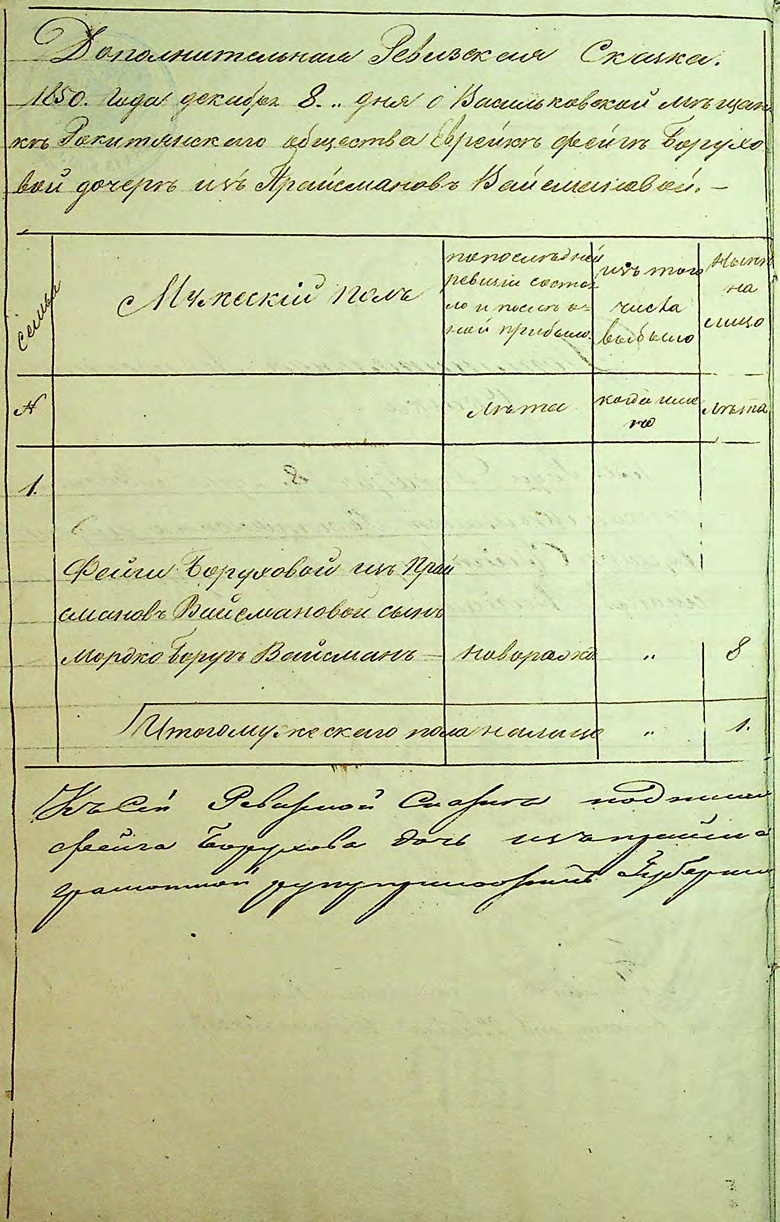 Дополнительная Ревизская Сказка.
1850. года декабря 8.. дня о Васильковской мѣщан
кѣ Рокитянского общества Еврейкѣ Фейгѣ Борухо
вой дочерѣ изъ Прайсмановъ Вайсмановой. —
семьи
Мужескій полъ
по последней
ревизіи состоя
ло и послѣ о-
ной прибыло.
изъ того
числа
выбыло
Нынѣ
на
лицо
№
лѣта
когда имен
но
лѣта
1.
Фейги Боруховой изъ Прай
смановъ Вайсмановой сынъ
Мордко Борухъ Вайсманъ — новорожд „ 8
Итого мужескаго пола налицо „ 1.
Къ сей Ревизкой Сказке подпи
Фейга Борухова дочь изъ
грамотной Губерни